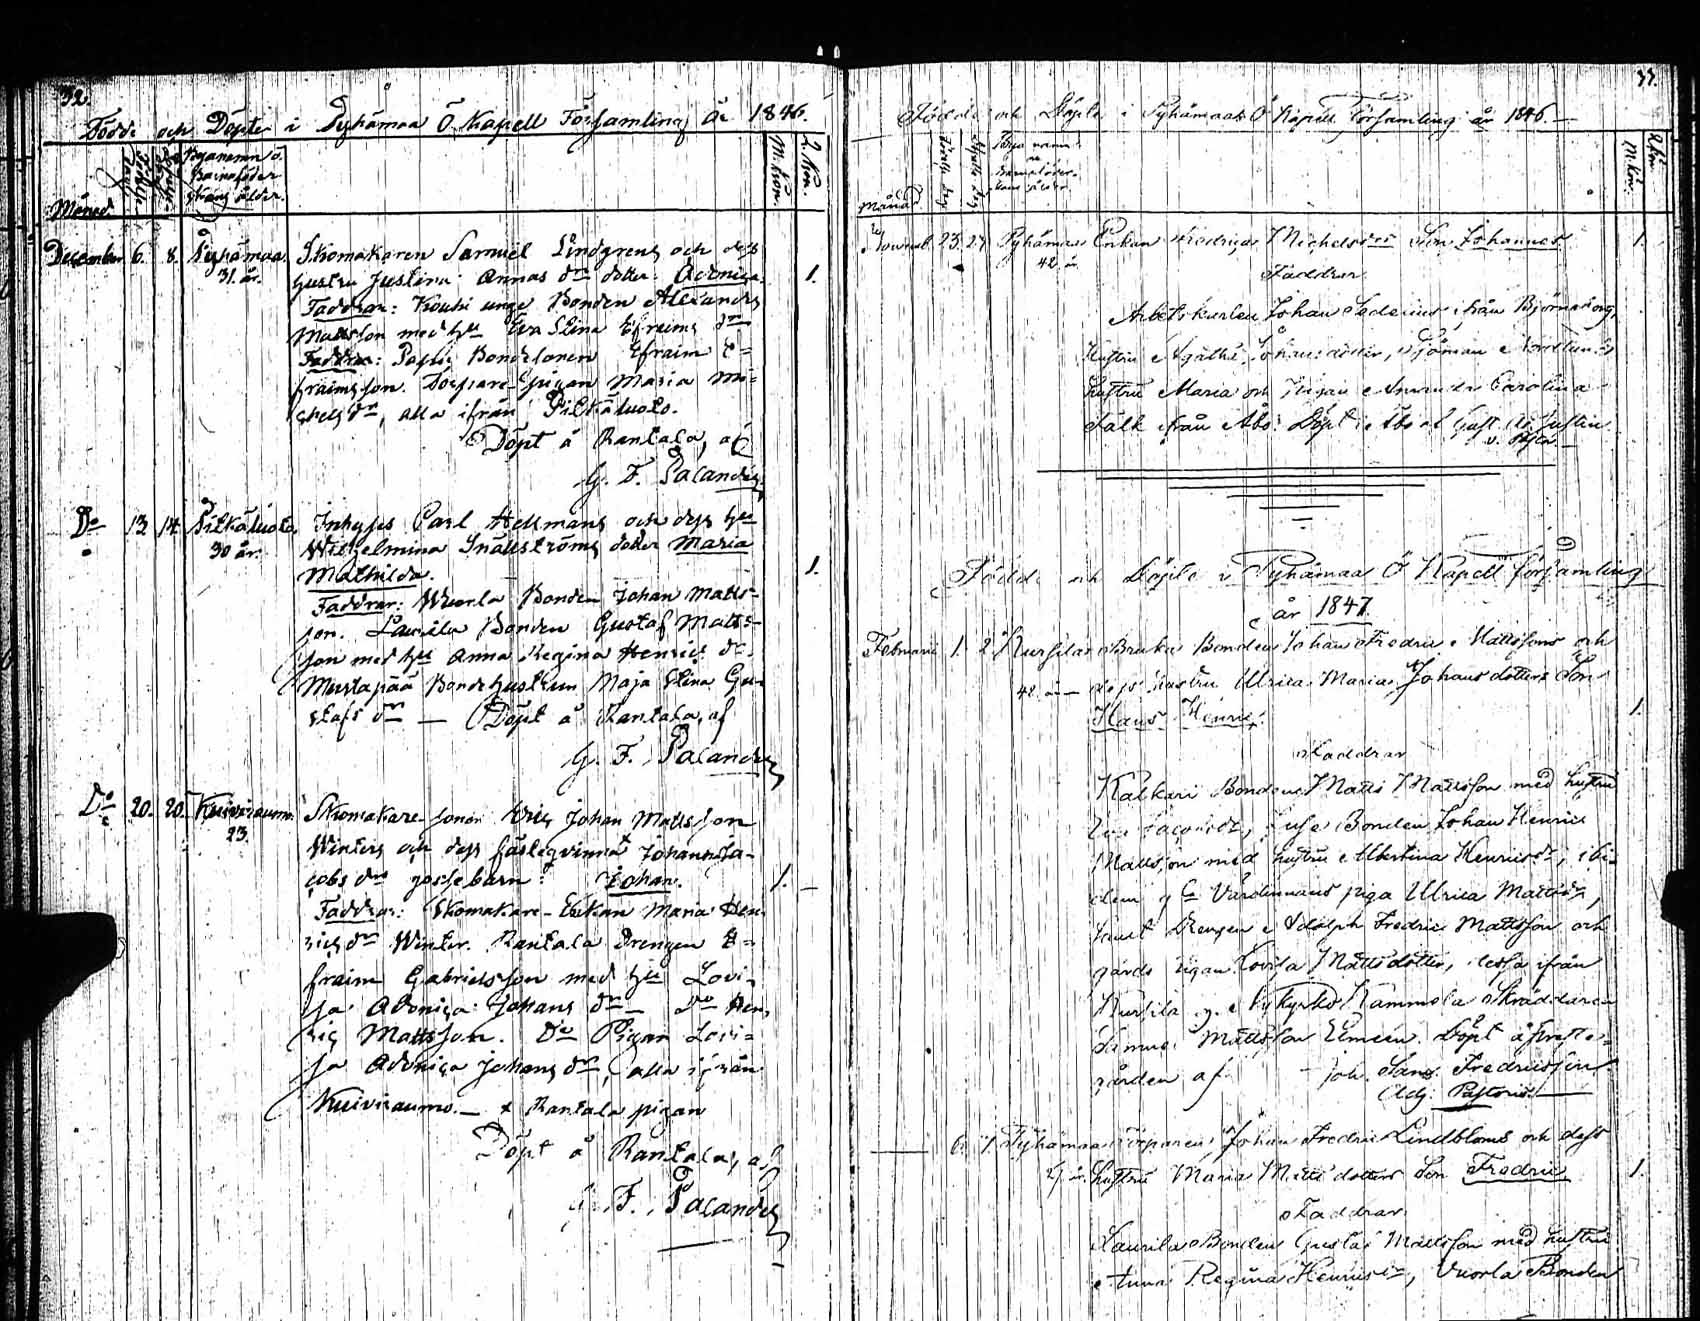 32.
Födde och Döpte i Pyhämaa Ö. Kapell Församling År 1846.
Månad.
Byanamn o.
Barnaföder
skans ålder.
M. kön.
Q. kön.
December 6. 8. Pyhämaa. Skomakaren Samuel Lindgrens och dess
31. år. hustru Justina Annas dr dotter: Adoniga. 1.
Faddrar: Kouhi unge Bonden Alexander
Mattsson med hu Eva Stina Efraims dr
Faddrar: Bondesonen Efraim E=
fraimsson. Torpare-Pigan Maria Mi=
chels dr, alla ifrån Pitkäluoto.
Döpt å Rantala, af
G. F. Palander.
Do 13 14 Pitkäluoto. Inhyses Carl Hellmans och dess hu
30 år. Wilhelmina Snällströms dotter Maria
Mathilda. 1.
Faddrar: Wuorla Bonden Johan Matts-
son. Laurila Bonden Gustaf Matts-
son med hu Anna Regina Henrics dr.
Mustapää Bondehustrun Maja Stina Gu-
stafs dr — Döpt å Rantala, af
G. F. Palander
Do 20. 20. Kuivirauma. Skomakare-sonen Eric Johan Mattsson
23. Winters och dess fästeqvinna x Johanna Ja-
cobs drs gossebarn: Johan. 1. —
Faddrar: Skomakare-Enkan Maria Hen-
rics dr Winter. Rantala Drengen E=
fraim Gabrielsson med hu Lovi-
sa Adoniga Johans dr — Do Hen-
ric Mattsson. Do Pigan Lovi=
sa Adoniga Johans dr, alla ifrån
Kuivirauma. — x Rantala pigan
Döpt å Rantala, af
G. F. Palander
33.
Födde och Döpte i Pyhämaa Ö Kapell Församling år 1846. —
Månad
M. kön.
Q. kön.
Novemb. 23. 27 Pyhämaa Enkan Fredrica Michelsdrs Son Johannes 1.
42 å.
Faddrar
Arbetskarlen Johan Sederius ifrån Björneborg,
Hustru Agatha Johansdotter, Sjöman Nordlunds
hustru Maria och Pigan Amanda Carolina
Falk ifrån Åbo: Döpt i Åbo af Gust. Ad.
Födde och Döpte i Pyhämaa Ö Kapell församling
år 1847.
Februarii 1. 2. Kursila Bruka Bonden Johan Fredric Mattssons och
42 år — dess hustru Ulrica Maria Johansdotters Son
Hans Henric. 1.
Faddrar
Kalkari Bonden Matts Mattsson med hustru
Bonden Johan Henric
Mattsson med hustru Albertina Henricsdr, ibi-
dem Värdinnans piga Ulrica Mattsdr,
samt Drengen Adolph Fredric Mattsson och
gårds pigan Lovisa Mattsdotter, dessa ifrån
Kursila Nykyrko Kammela Skräddaren
Samuel Mattsson Elmén. Döpt å
gården af Joh. Fredricsson
Adj. Pastoris.
6. 7. Pyhämaa Torparen Johan Fredric Lindbloms och dess
hustru Maria Mattsdotters Son Fredric. 1.
Faddrar
Laurila Bonden Gustaf Mattsson med hustru
Anna Regina Henricsdr, Vuorla Bonden